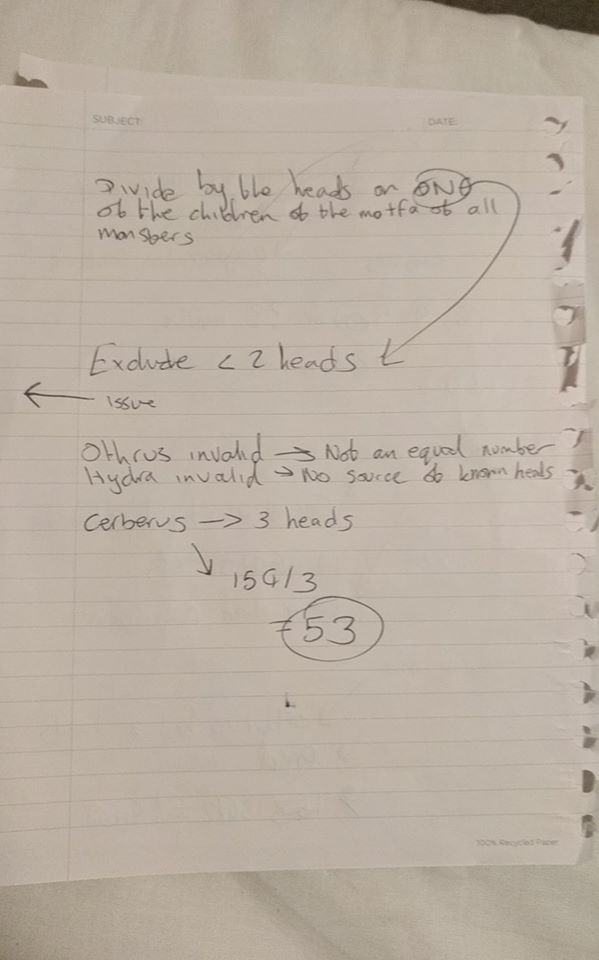 SUBJECT:
DATE:
Divide by the heads on ONE
of the children of the motfa of all
monsters
Exclude < 2 heads
← issue
Othrus invalid → Not an equal number
Hydra invalid → No source of known heads
Cerberus → 3 heads
159/3
=53
100% Recycled Paper